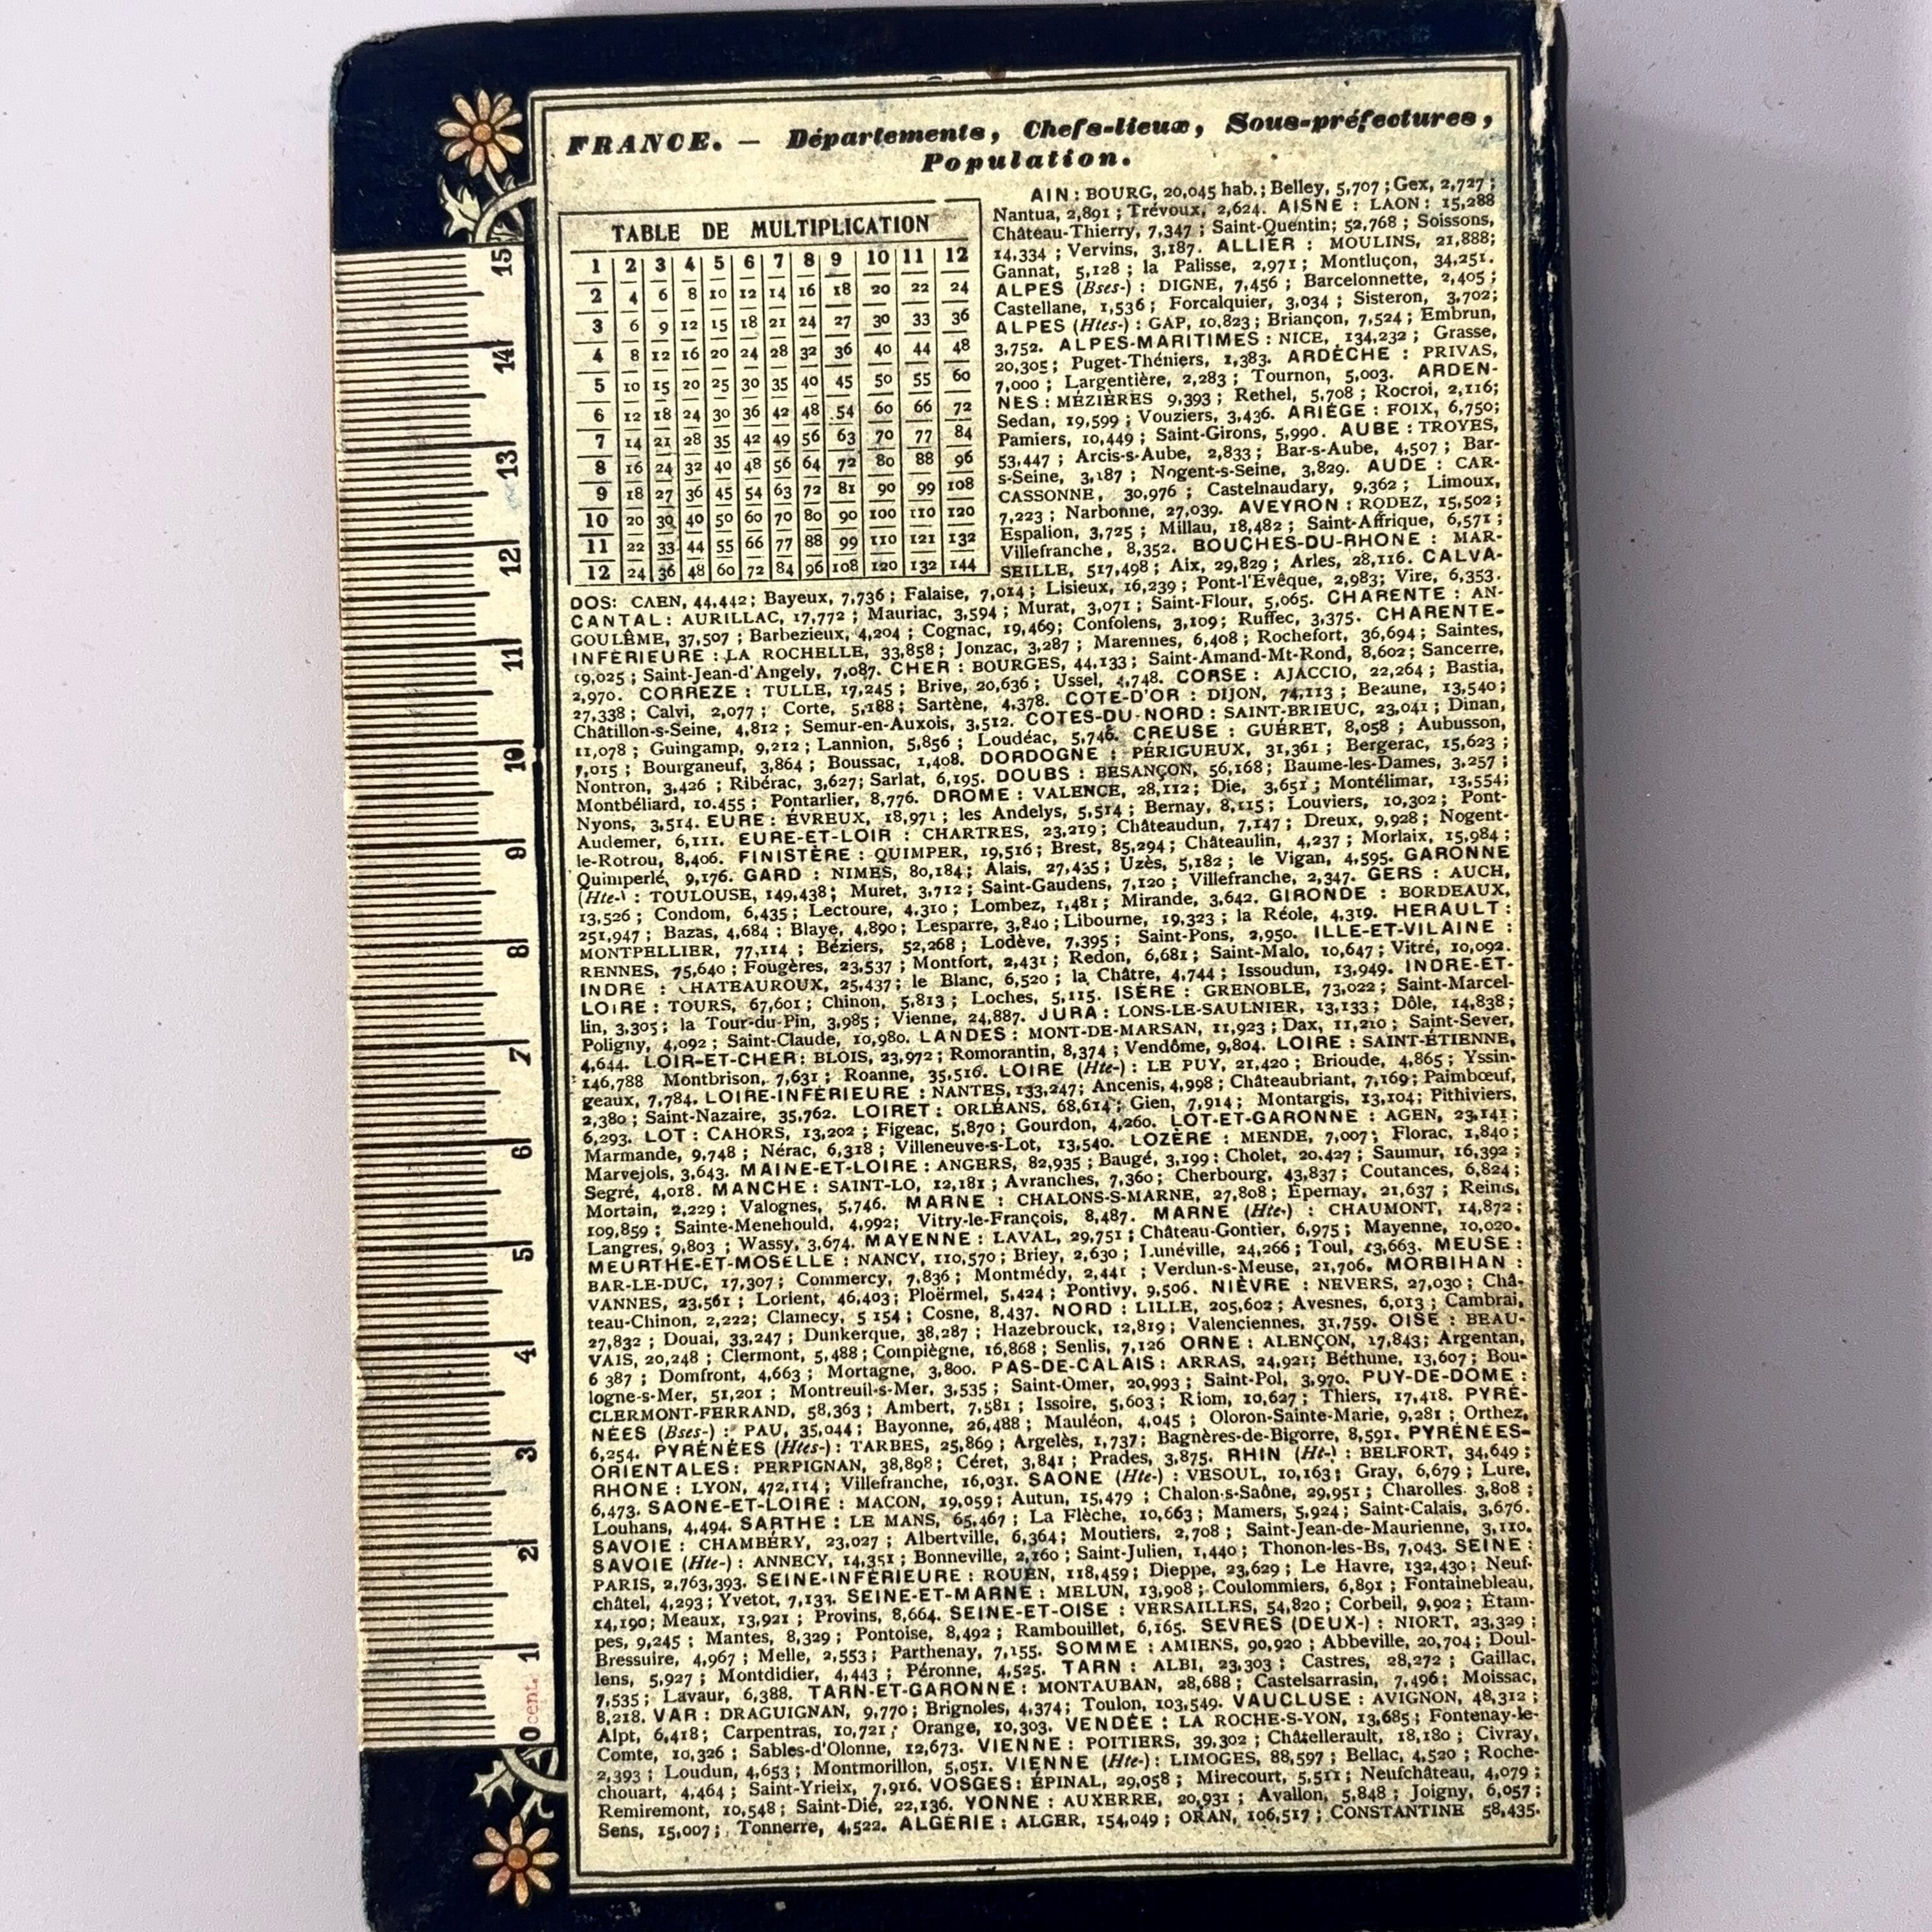 FRANCE. — Départements, Chefs-lieux, Sous-préfectures,
Population.
TABLE DE MULTIPLICATION
1 2 3 4 5 6 7 8 9 10 11 12
2 4 6 8 10 12 14 16 18 20 22 24
3 6 9 12 15 18 21 24 27 30 33 36
4 8 12 16 20 24 28 32 36 40 44 48
5 10 15 20 25 30 35 40 45 50 55 60
6 12 18 24 30 36 42 48 54 60 66 72
7 14 21 28 35 42 49 56 63 70 77 84
8 16 24 32 40 48 56 64 72 80 88 96
9 18 27 36 45 54 63 72 81 90 99 108
10 20 30 40 50 60 70 80 90 100 110 120
11 22 33 44 55 66 77 88 99 110 121 132
12 24 36 48 60 72 84 96 108 120 132 144
AIN : BOURG, 20,045 hab. ; Belley, 5,707 ; Gex, 2,727 ;
Nantua, 2,891 ; Trévoux, 2,624. AISNE : LAON : 15,288
Château-Thierry, 7,347 ; Saint-Quentin; 52,768 ; Soissons,
14,334 ; Vervins, 3,187. ALLIER : MOULINS, 21,888;
Gannat, 5,128 ; la Palisse, 2,971 ; Montluçon, 34,251.
ALPES (Bses-) : DIGNE, 7,456 ; Barcelonnette, 2,405 ;
Castellane, 1,536 ; Forcalquier, 3,034 ; Sisteron, 3,702;
ALPES (Htes-) : GAP, 10,823 ; Briançon, 7,524 ; Embrun,
3,752. ALPES-MARITIMES : NICE, 134,232 ; Grasse,
20,305 ; Puget-Théniers, 1,383. ARDÈCHE : PRIVAS,
7,000 ; Largentière, 2,283 ; Tournon, 5,003. ARDEN-
NES : MÉZIÈRES 9,393 ; Rethel, 5,708 ; Rocroi, 2,116;
Sedan, 19,599 ; Vouziers, 3,436. ARIÈGE : FOIX, 6,750;
Pamiers, 10,449 ; Saint-Girons, 5,990. AUBE : TROYES,
53,447 ; Arcis-s-Aube, 2,833 ; Bar-s-Aube, 4,507 ; Bar-
s-Seine, 3,187 ; Nogent-s-Seine, 3,829. AUDE : CAR-
CASSONNE, 30,976 ; Castelnaudary, 9,362 ; Limoux,
7,223 ; Narbonne, 27,039. AVEYRON : RODEZ, 15,502 ;
Espalion, 3,725 ; Millau, 18,482 ; Saint-Affrique, 6,571 ;
Villefranche, 8,352. BOUCHES-DU-RHONE : MAR-
SEILLE, 517,498 ; Aix, 29,829 ; Arles, 28,116. CALVA-
DOS: CAEN, 44,442; Bayeux, 7,736 ; Falaise, 7,014 ; Lisieux, 16,239 ; Pont-l'Evêque, 2,983; Vire, 6,353.
CANTAL : AURILLAC, 17,772 ; Mauriac, 3,594 ; Murat, 3,071 ; Saint-Flour, 5,065. CHARENTE : AN-
GOULÊME, 37,507 ; Barbezieux, 4,204 ; Cognac, 19,469; Confolens, 3,109; Ruffec, 3,375. CHARENTE-
INFÉRIEURE : LA ROCHELLE, 33,858 ; Jonzac, 3,287 ; Marennes, 6,408 ; Rochefort, 36,694 ; Saintes,
19,025 ; Saint-Jean-d'Angely, 7,087. CHER : BOURGES, 44,133 ; Saint-Amand-Mt-Rond, 8,602 ; Sancerre,
2,970. CORREZE : TULLE, 17,245 ; Brive, 20,636 ; Ussel, 4,748. CORSE : AJACCIO, 22,264 ; Bastia,
27,338 ; Calvi, 2,077 ; Corte, 5,188 ; Sartène, 4,378. COTE-D'OR : DIJON, 74,113 ; Beaune, 13,540 ;
Châtillon-s-Seine, 4,812 ; Semur-en-Auxois, 3,512. COTES-DU-NORD : SAINT-BRIEUC, 23,041 ; Dinan,
11,078 ; Guingamp, 9,212 ; Lannion, 5,856 ; Loudéac, 5,746. CREUSE : GUÉRET, 8,058 ; Aubusson,
7,015 ; Bourganeuf, 3,864 ; Boussac, 1,408. DORDOGNE : PÉRIGUEUX, 31,361 ; Bergerac, 15,623 ;
Nontron, 3,426 ; Ribérac, 3,627; Sarlat, 6,195. DOUBS : BESANÇON, 56,168; Baume-les-Dames, 3,257 ;
Montbéliard, 10.455 ; Pontarlier, 8,776. DROME : VALENCE, 28,112 ; Die, 3,651 ; Montélimar, 13,554;
Nyons, 3,514. EURE : ÉVREUX, 18,971 ; les Andelys, 5,514 ; Bernay, 8,115 ; Louviers, 10,302 ; Pont-
Audemer, 6,111. EURE-ET-LOIR : CHARTRES, 23,219 ; Châteaudun, 7,147 ; Dreux, 9,928 ; Nogent-
le-Rotrou, 8,406. FINISTÈRE : QUIMPER, 19,516 ; Brest, 85,294 ; Châteaulin, 4,237 ; Morlaix, 15,984 ;
Quimperlé, 9,176. GARD : NIMES, 80,184 ; Alais, 27,435 ; Uzès, 5,182 ; le Vigan, 4,595. GARONNE
(Hte-) : TOULOUSE, 149,438; Muret, 3,712 ; Saint-Gaudens, 7,120 ; Villefranche, 2,347. GERS : AUCH,
13,526 ; Condom, 6,435 ; Lectoure, 4,310 ; Lombez, 1,481 ; Mirande, 3,642. GIRONDE : BORDEAUX,
251,947 ; Bazas, 4,684 ; Blaye, 4,890 ; Lesparre, 3,840 ; Libourne, 19,323 ; la Réole, 4,319. HERAULT :
MONTPELLIER, 77,114 ; Béziers, 52,268 ; Lodève, 7,395 ; Saint-Pons, 2,950. ILLE-ET-VILAINE :
RENNES, 75,640 ; Fougères, 23,537 ; Montfort, 2,431 ; Redon, 6,681 ; Saint-Malo, 10,647 ; Vitré, 10,092.
INDRE : CHATEAUROUX, 25,437; le Blanc, 6,520 ; la Châtre, 4,744 ; Issoudun, 13,949. INDRE-ET-
LOIRE : TOURS, 67,601 ; Chinon, 5,813 ; Loches, 5,115. ISÈRE : GRENOBLE, 73,022 ; Saint-Marcel-
lin, 3,305 ; la Tour-du-Pin, 3,985 ; Vienne, 24,887. JURA : LONS-LE-SAULNIER, 13,133 ; Dôle, 14,838;
Poligny, 4,092 ; Saint-Claude, 10,980. LANDES : MONT-DE-MARSAN, 11,923 ; Dax, 11,210 ; Saint-Sever,
4,644. LOIR-ET-CHER : BLOIS, 23,972 ; Romorantin, 8,374 ; Vendôme, 9,804. LOIRE : SAINT-ÉTIENNE,
146,788 Montbrison, 7,631 ; Roanne, 35,516. LOIRE (Hte-) : LE PUY, 21,420 ; Brioude, 4,865 ; Yssin-
geaux, 7,784. LOIRE-INFÉRIEURE : NANTES, 133,247; Ancenis, 4,998 ; Châteaubriant, 7,169 ; Paimbœuf,
2,380 ; Saint-Nazaire, 35,762. LOIRET : ORLÉANS, 68,614 ; Gien, 7,914 ; Montargis, 13,104 ; Pithiviers,
6,293. LOT : CAHORS, 13,202 ; Figeac, 5,870 ; Gourdon, 4,260. LOT-ET-GARONNE : AGEN, 23,141 ;
Marmande, 9,748 ; Nérac, 6,318 ; Villeneuve-s-Lot, 13,540. LOZÈRE : MENDE, 7,007 ; Florac, 1,840 ;
Marvejols, 3,643. MAINE-ET-LOIRE : ANGERS, 82,935 ; Baugé, 3,199 ; Cholet, 20,427 ; Saumur, 16,392 ;
Segré, 4,018. MANCHE : SAINT-LO, 12,181 ; Avranches, 7,360 ; Cherbourg, 43,837 ; Coutances, 6,824 ;
Mortain, 2,229 ; Valognes, 5,746. MARNE : CHALONS-S-MARNE, 27,808 ; Épernay, 21,637 ; Reims,
109,859 ; Sainte-Menehould, 4,992; Vitry-le-François, 8,487. MARNE (Hte-) : CHAUMONT, 14,872 ;
Langres, 9,803 ; Wassy, 3,674. MAYENNE : LAVAL, 29,751 ; Château-Gontier, 6,975 ; Mayenne, 10,020.
MEURTHE-ET-MOSELLE : NANCY, 110,570 ; Briey, 2,630 ; Lunéville, 24,266 ; Toul, 13,663. MEUSE :
BAR-LE-DUC, 17,307 ; Commercy, 7,836 ; Montmédy, 2,441 ; Verdun-s-Meuse, 21,706. MORBIHAN :
VANNES, 23,561 ; Lorient, 46,403 ; Ploërmel, 5,424 ; Pontivy, 9,506. NIÈVRE : NEVERS, 27,030 ; Châ-
teau-Chinon, 2,222; Clamecy, 5 154 ; Cosne, 8,437. NORD : LILLE, 205,602 ; Avesnes, 6,013 ; Cambrai,
27,832 ; Douai, 33,247 ; Dunkerque, 38,287 ; Hazebrouck, 12,819 ; Valenciennes, 31,759. OISE : BEAU-
VAIS, 20,248 ; Clermont, 5,488 ; Compiègne, 16,868 ; Senlis, 7,126 ORNE : ALENÇON, 17,843; Argentan,
6 387 ; Domfront, 4,663 ; Mortagne, 3,800. PAS-DE-CALAIS : ARRAS, 24,921; Béthune, 13,607 ; Bou-
logne-s-Mer, 51,201 ; Montreuil-s-Mer, 3,535 ; Saint-Omer, 20,993 ; Saint-Pol, 3,970. PUY-DE-DOME :
CLERMONT-FERRAND, 58,363 ; Ambert, 7,581 ; Issoire, 5,603 ; Riom, 10,627 ; Thiers, 17,418. PYRÉ-
NÉES (Bses-) : PAU, 35,044 ; Bayonne, 26,488 ; Mauléon, 4,045 ; Oloron-Sainte-Marie, 9,281 ; Orthez,
6,254. PYRÉNÉES (Htes-) : TARBES, 25,869 ; Argelès, 1,737 ; Bagnères-de-Bigorre, 8,591. PYRÉNÉES-
ORIENTALES : PERPIGNAN, 38,898 ; Céret, 3,841 ; Prades, 3,875. RHIN (Ht-) : BELFORT, 34,649 ;
RHONE : LYON, 472,114 ; Villefranche, 16,031. SAONE (Hte-) : VESOUL, 10,163 ; Gray, 6,679 ; Lure,
6,473. SAONE-ET-LOIRE : MACON, 19,059 ; Autun, 15,479 ; Chalon-s-Saône, 29,951 ; Charolles 3,808 ;
Louhans, 4,494. SARTHE : LE MANS, 65,467 ; La Flèche, 10,663 ; Mamers, 5,924 ; Saint-Calais, 3,676.
SAVOIE : CHAMBÉRY, 23,027 ; Albertville, 6,364 ; Moutiers, 2,708 ; Saint-Jean-de-Maurienne, 3,110.
SAVOIE (Hte-) : ANNECY, 14,351 ; Bonneville, 2,160 ; Saint-Julien, 1,440 ; Thonon-les-Bs, 7,043. SEINE :
PARIS, 2,763,393. SEINE-INFÉRIEURE : ROUEN, 118,459 ; Dieppe, 23,629 ; Le Havre, 132,430 ; Neuf-
châtel, 4,293 ; Yvetot, 7,133. SEINE-ET-MARNE : MELUN, 13,908 ; Coulommiers, 6,891 ; Fontainebleau,
14,190 ; Meaux, 13,921 ; Provins, 8,664. SEINE-ET-OISE : VERSAILLES, 54,820 ; Corbeil, 9,902 ; Étam-
pes, 9,245 ; Mantes, 8,329 ; Pontoise, 8,492 ; Rambouillet, 6,165. SEVRES (DEUX-) : NIORT, 23,329 ;
Bressuire, 4,967 ; Melle, 2,553 ; Parthenay, 7,155. SOMME : AMIENS, 90,920 ; Abbeville, 20,704 ; Doul-
lens, 5,927 ; Montdidier, 4,443 ; Péronne, 4,525. TARN : ALBI, 23,303 ; Castres, 28,272 ; Gaillac,
7,535 ; Lavaur, 6,388. TARN-ET-GARONNE : MONTAUBAN, 28,688 ; Castelsarrasin, 7,496 ; Moissac,
8,218. VAR : DRAGUIGNAN, 9,770 ; Brignoles, 4,374 ; Toulon, 103,549. VAUCLUSE : AVIGNON, 48,312 ;
Alpt, 6,418 ; Carpentras, 10,721 ; Orange, 10,303. VENDÉE : LA ROCHE-S-YON, 13,685 ; Fontenay-le-
Comte, 10,326 ; Sables-d'Olonne, 12,673. VIENNE : POITIERS, 39,302 ; Châtellerault, 18,180 ; Civray,
2,393 ; Loudun, 4,653 ; Montmorillon, 5,051. VIENNE (Hte-) : LIMOGES, 88,597 ; Bellac, 4,520 ; Roche-
chouart, 4,464 ; Saint-Yrieix, 7,916. VOSGES : ÉPINAL, 29,058 ; Mirecourt, 5,511 ; Neufchâteau, 4,079 ;
Remiremont, 10,548 ; Saint-Dié, 22,136. YONNE : AUXERRE, 20,931 ; Avallon, 5,848 ; Joigny, 6,057 ;
Sens, 15,007 ; Tonnerre, 4,522. ALGÉRIE : ALGER, 154,049 ; ORAN, 106,517 ; CONSTANTINE 58,435.
15
14
13
12
11
10
9
8
7
6
5
4
3
2
1
0 cent.